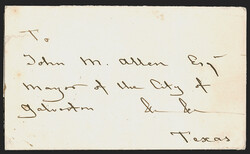 To
John M. Allen Esqr
Mayor of the City of
Galveston &c &c
Texas